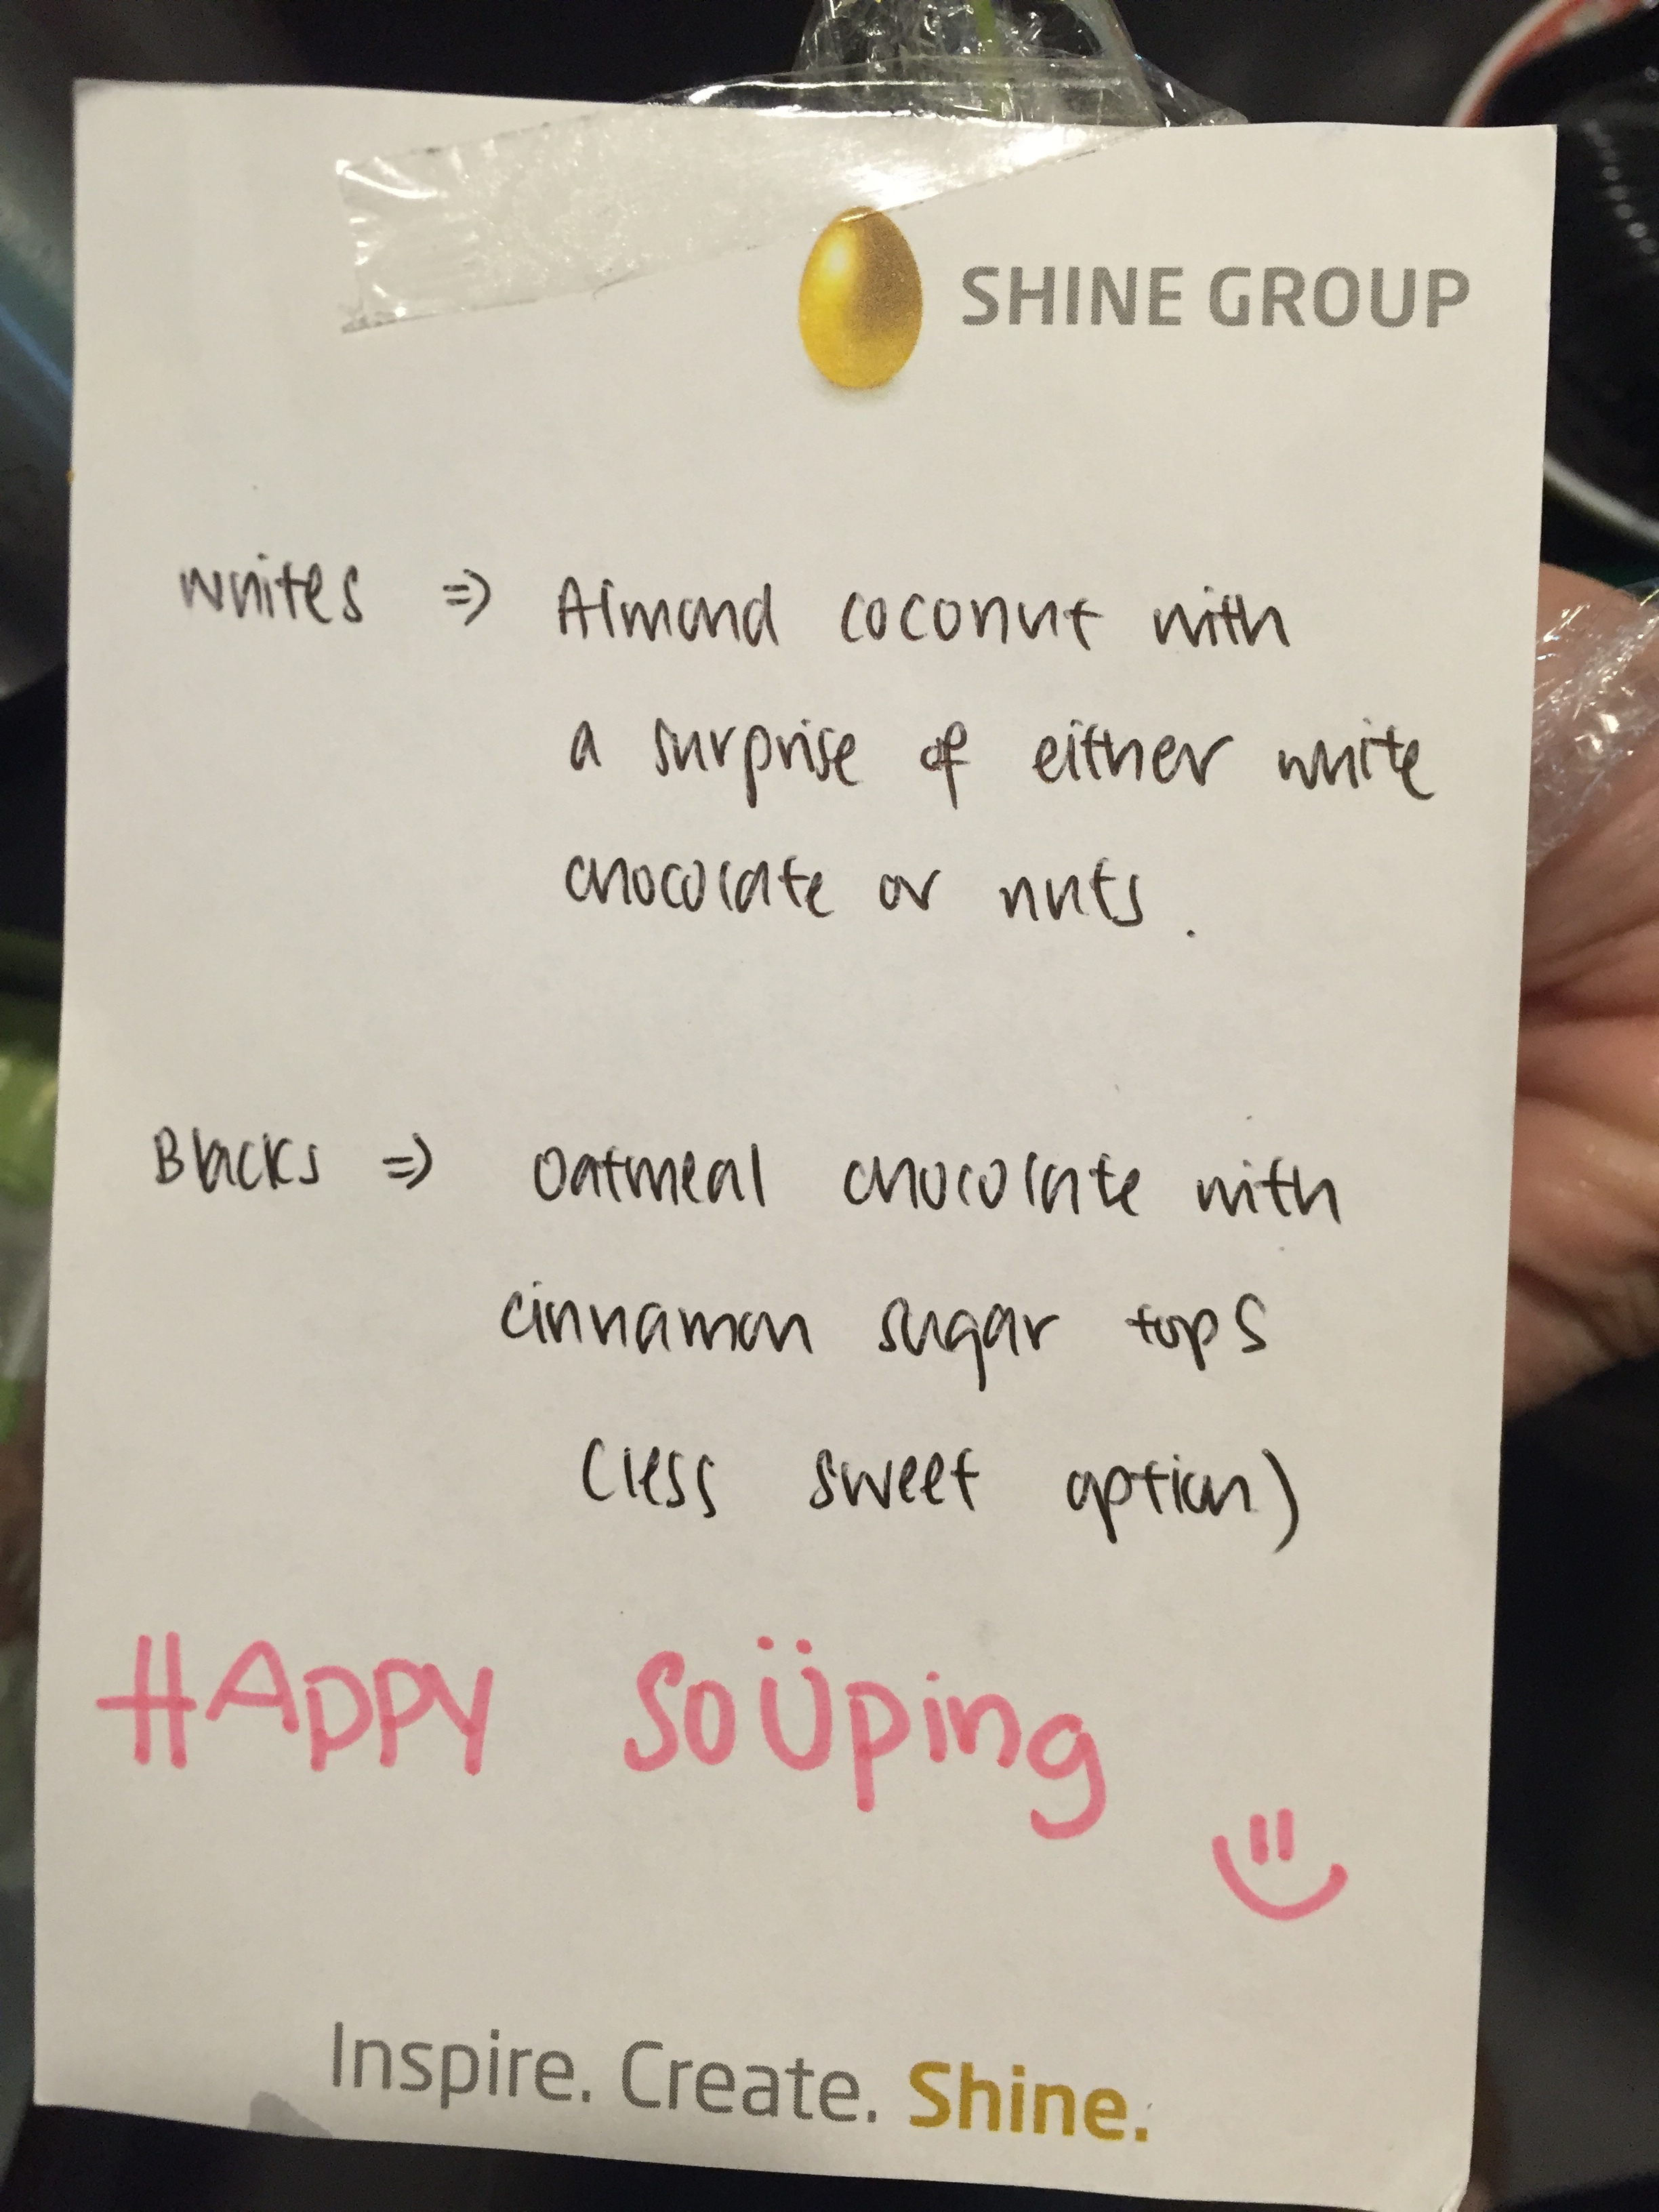 SHINE GROUP
Whites => Almond coconut with
a surprise of either white
chocolate or nuts.
Blacks => Oatmeal chocolate with
cinnamon sugar tops
(less sweet option)
HAPPY SOÜping
Inspire. Create. Shine.